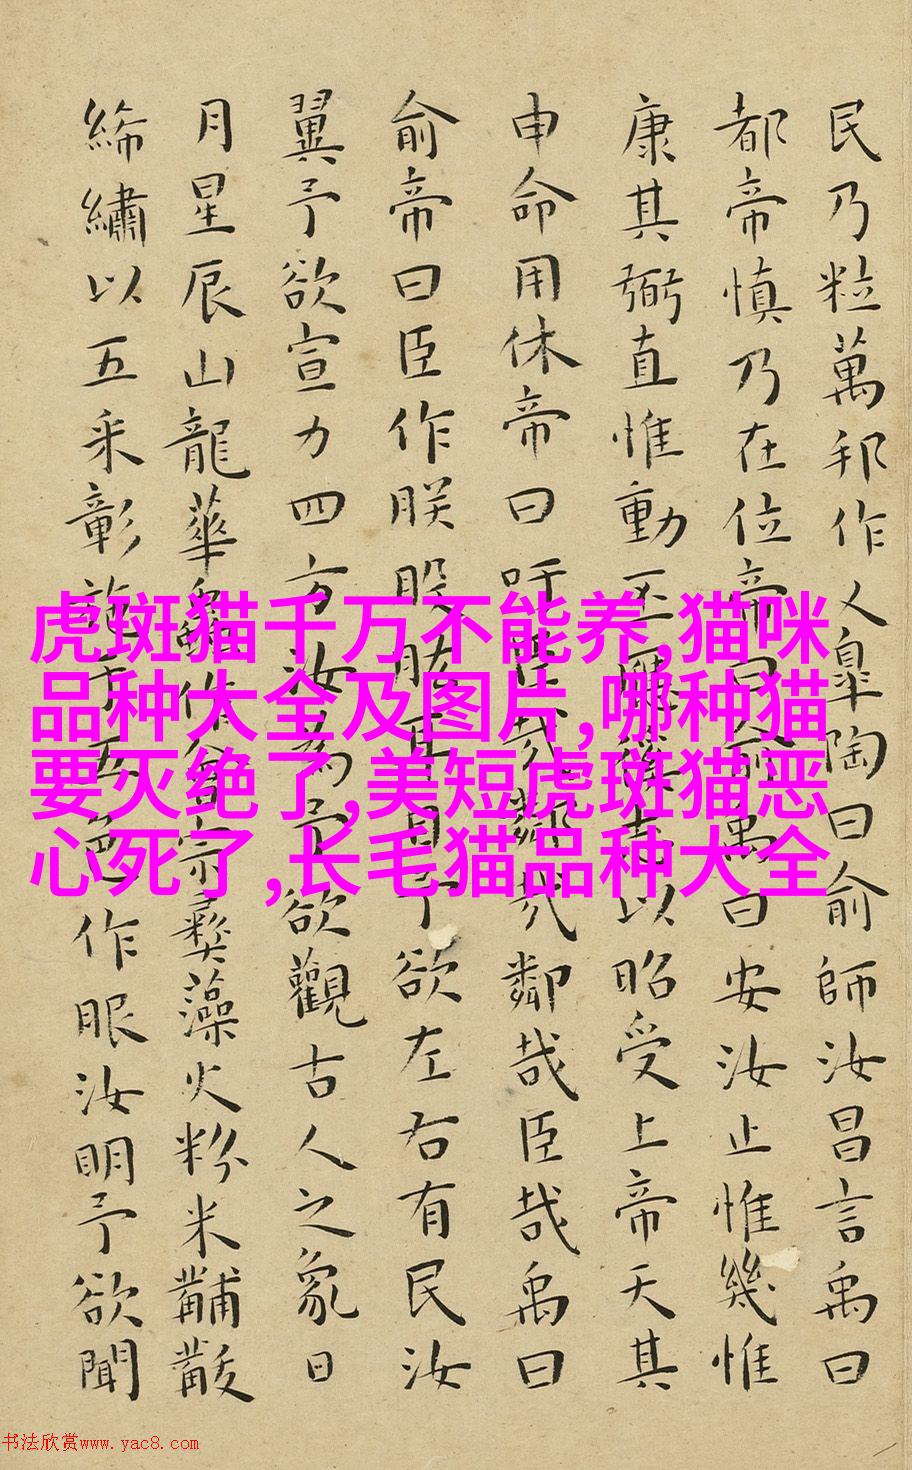 民乃粒萬邦作乂臯陶曰俞師汝昌言禹曰
都帝慎乃在位帝曰俞禹曰安汝止惟幾惟
康其弼直惟動丕應徯志以昭受上帝天其
申命用休帝曰吁臣哉鄰哉鄰哉臣哉禹曰
俞帝曰臣作朕股肱耳目予欲左右有民汝
翼予欲宣力四方汝為予欲觀古人之象日
月星辰山龍華蟲作會宗彝藻火粉米黼黻
絺繡以五采彰施于五色作服汝明予欲聞
虎斑猫千万不能养,猫咪
品种大全及图片,哪种猫
要灭绝了,美短虎斑猫恶
心死了,长毛猫品种大全
书法欣赏www.yac8.com